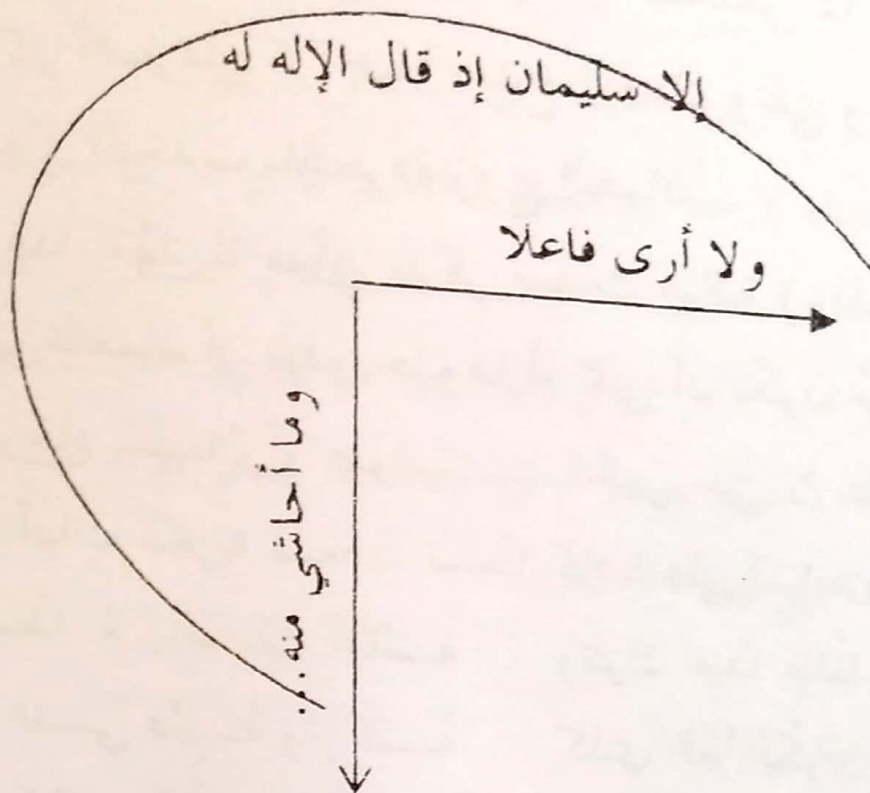 إلا سليمان إذ قال الإله له
ولا أرى فاعلا
وما أحاشي منه...